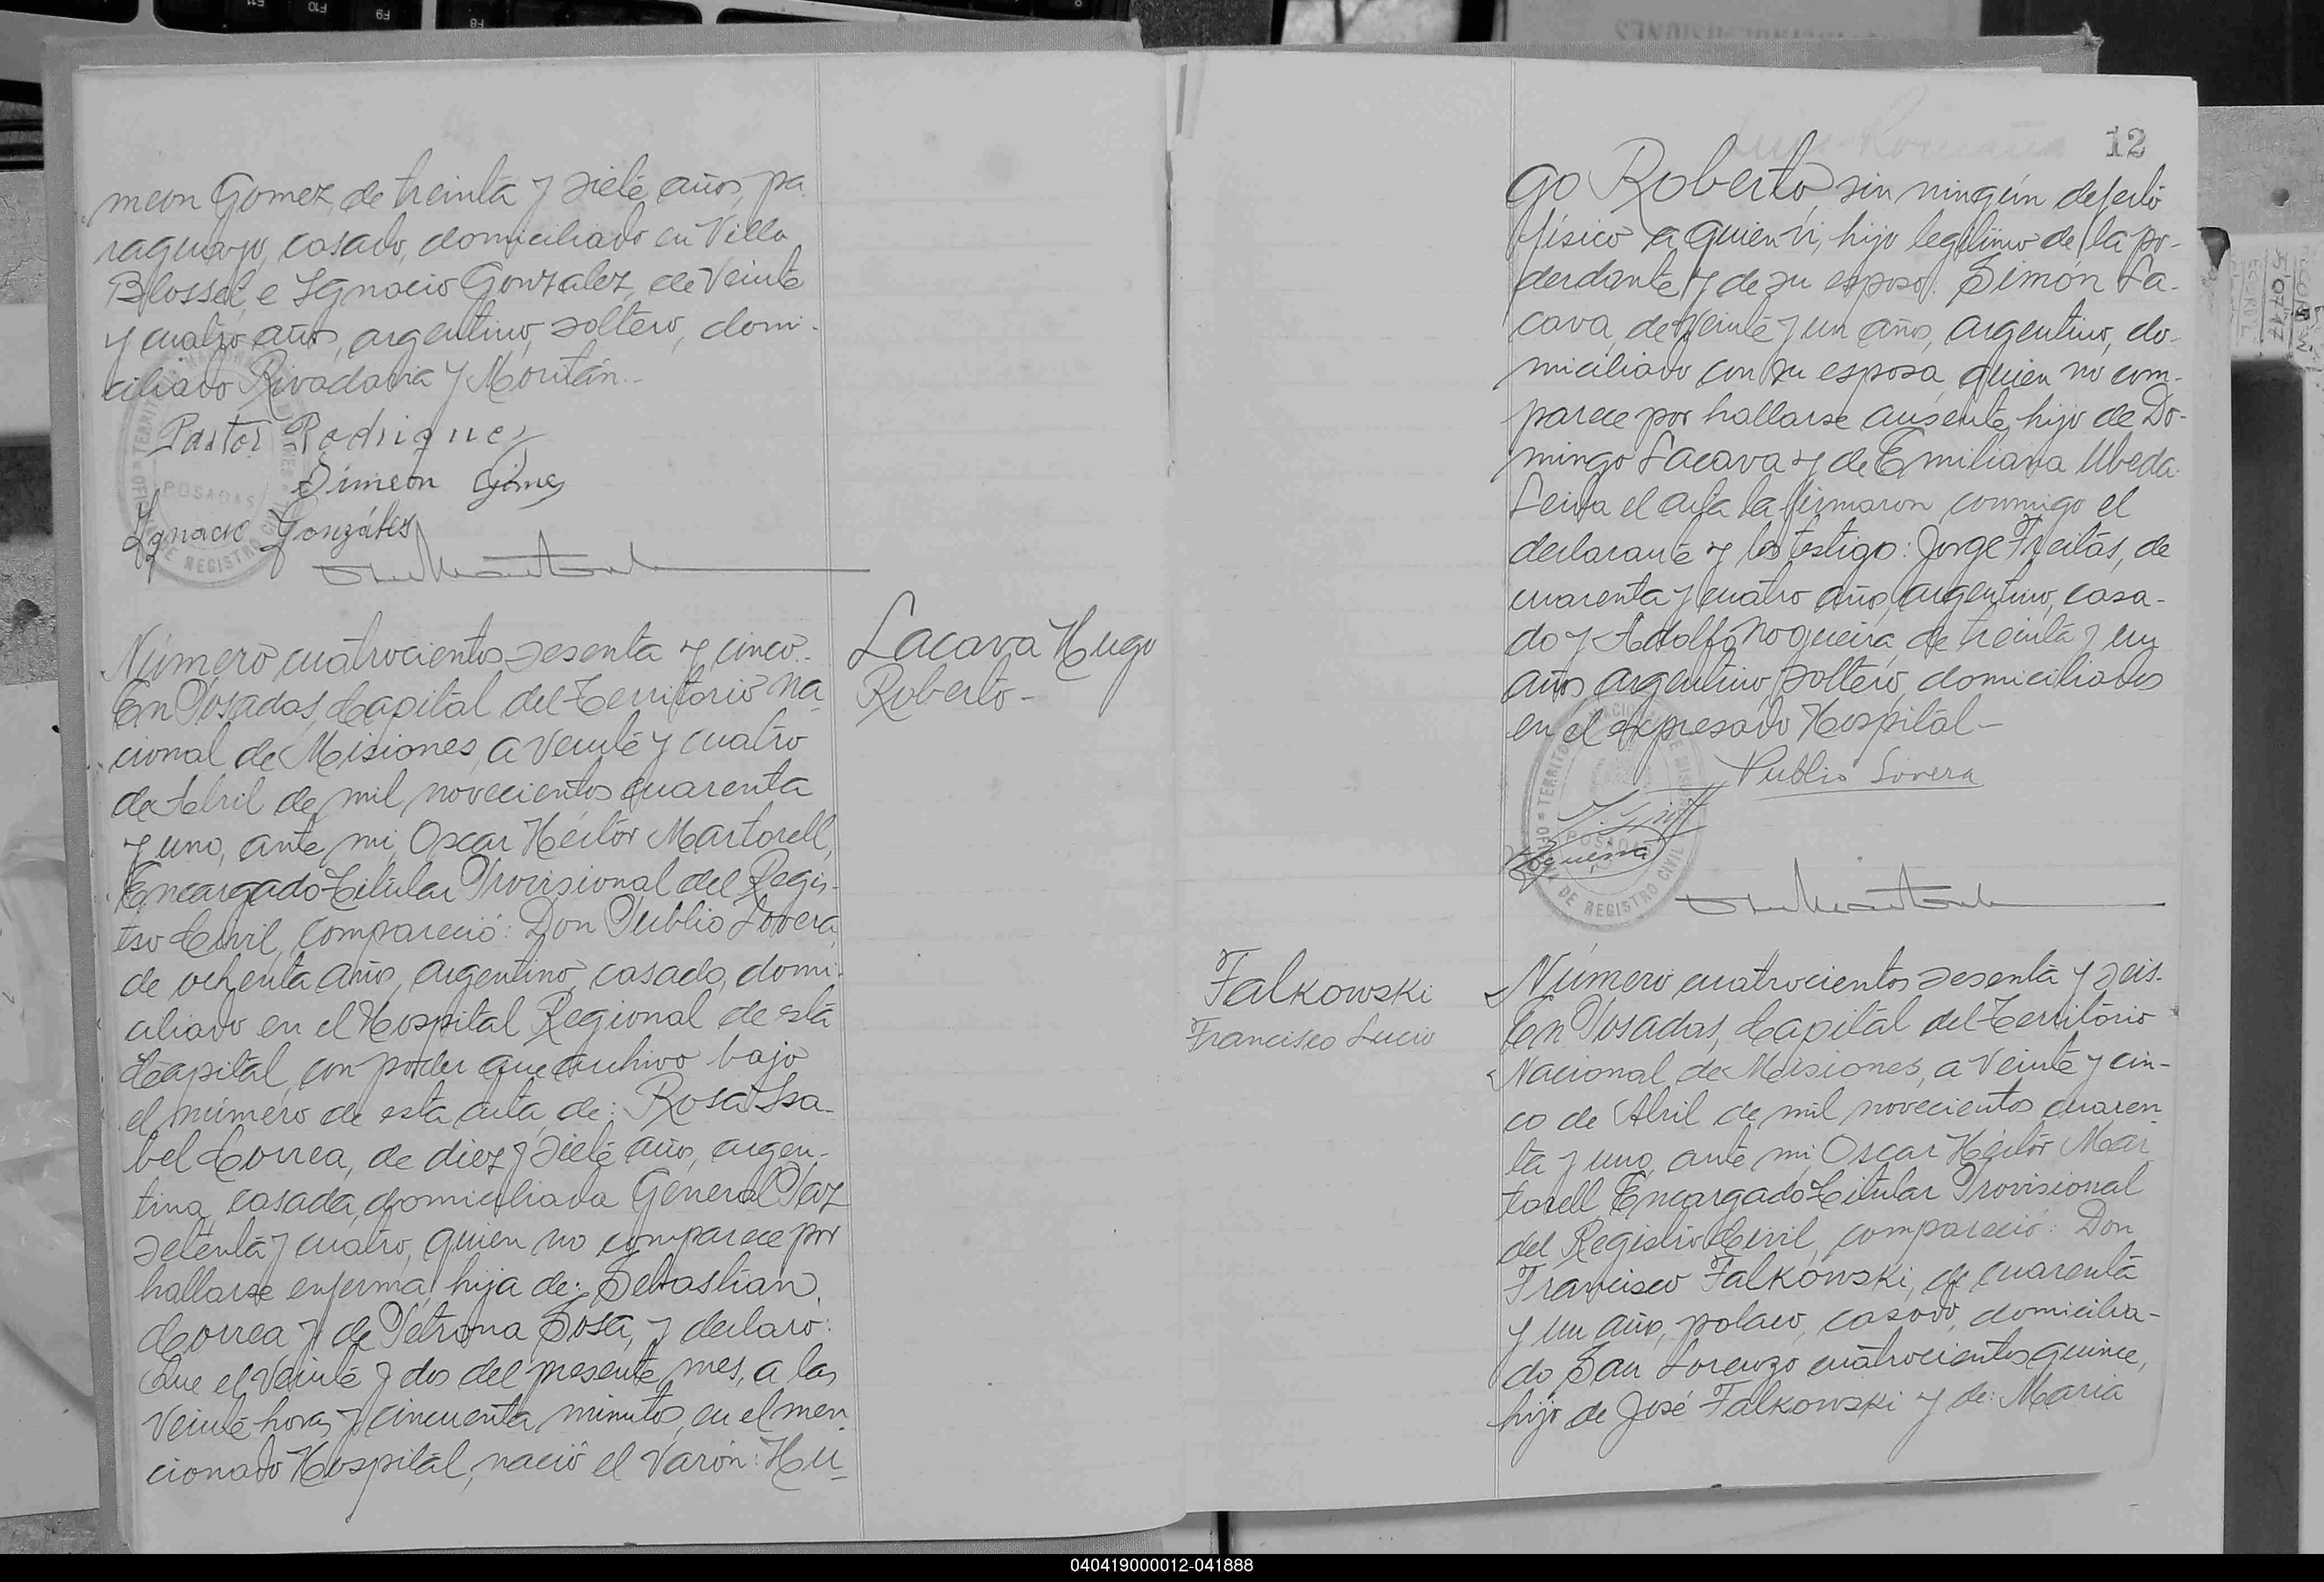 meon Gomez, de treinta y siete años, pa
raguayo, casado, domiciliado en Villa
Blosset, e Ignacio Gonzalez, de veinte
y cuatro años, argentino, soltero, domi-
ciliado Rivadavia y
Pastor Rodriguez
Simeon Gómez
Ignacio González
POSADAS
Número cuatrocientos sesenta y cinco.-
En Posadas, Capital del Territorio Na-
cional de Misiones, a veinte y cuatro
de Abril de mil novecientos cuarenta
y uno, ante mi, Oscar Héctor Martorell,
Encargado Titular Provisional del Regis-
tro Civil, compareció: Don Publio Lovera,
de ochenta años, argentino, casado, domi-
ciliado en el Hospital Regional de esta
Capital, con poder que archivo bajo
el número de esta acta, de: Rosa Isa-
bel Correa, de diez y siete años, argen-
tina, casada, domiciliada General Paz
setenta y cuatro, quien no comparece por
hallarse enferma, hija de: Sebastian
Correa y de Petrona Sosa, y declaro:
Que el veinte y dos del presente mes, a las
veinte horas y cincuenta minutos, en el men
cionado Hospital, nació el varón: Hu-
Lacava Hugo
Roberto-
12
go Roberto, sin ningún defecto
físico a quien vi, hijo legítimo de la po-
derdante y de su esposo: Simón La-
cava, de veinte y un años, argentino, do-
miciliado con su esposa, quien no com-
parece por hallarse ausente, hijo de Do-
mingo Lacava y de Emiliana Ubeda.
Leida el acta la firmaron conmigo el
declarante y los testigo: Jorge Freitas, de
cuarenta y cuatro años, argentino, casa-
do y Adolfo Nogueira, de treinta y un
años, argentino, soltero, domiciliados
en el expresado Hospital-
Publio Lovera
POSADAS
DE REGISTRO CIVIL
Falkowski
Francisco Lucio
Número cuatrocientos sesenta y seis.
En Posadas, Capital del Territorio
Nacional de Misiones, a veinte y cin-
co de Abril de mil novecientos cuaren
ta y uno, ante mi, Oscar Héctor Mar
torell, Encargado Titular Provisional
del Registro Civil, compareció: Don
Francisco Falkowski, de cuarenta
y un años, polaco, casado, domicilia-
do San Lorenzo cuatrocientos quince,
hijo de José Falkowski y de: Maria
040419000012-041888